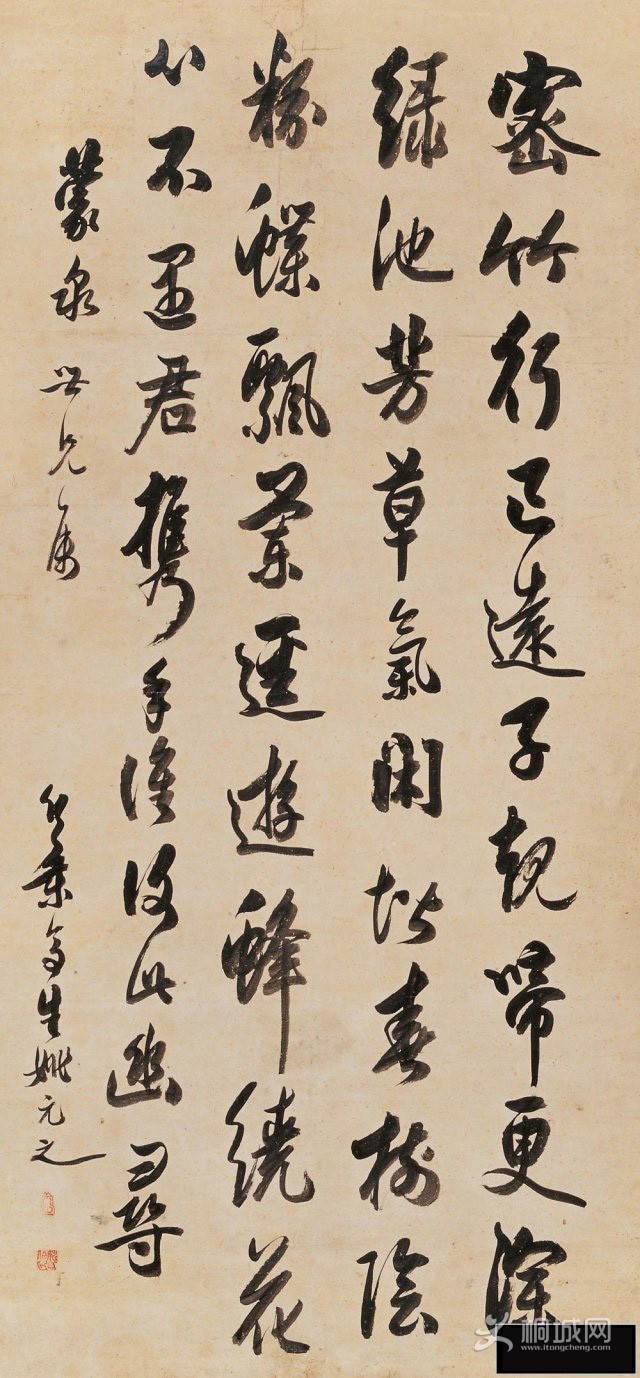 密竹行已遠子規啼更深
緑池芳草氣閑堦春樹陰
粉蝶飄蘭逕遊蜂繞花
心不遇君携手誰復此幽尋
蒙泉世兄屬
竹葉亭生姚元之
桐城网
www.itongcheng.com